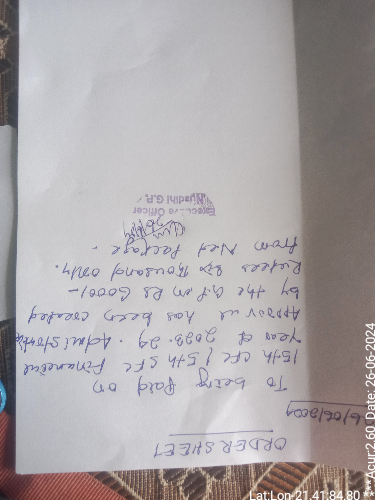 ORDER SHEET
6/06/2024
To being Paid on
15th CFC / 5th SFC Financial
Year of 2023-24. Administrative
Approval has been created
by the G.P. on Rs 6000/-
Rupees Six Thousand only.
from Net Package.
Executive Officer
G.P.
Lat:Lon 21.41:84.80 *** Acur:2.60 Date: 26-06-2024